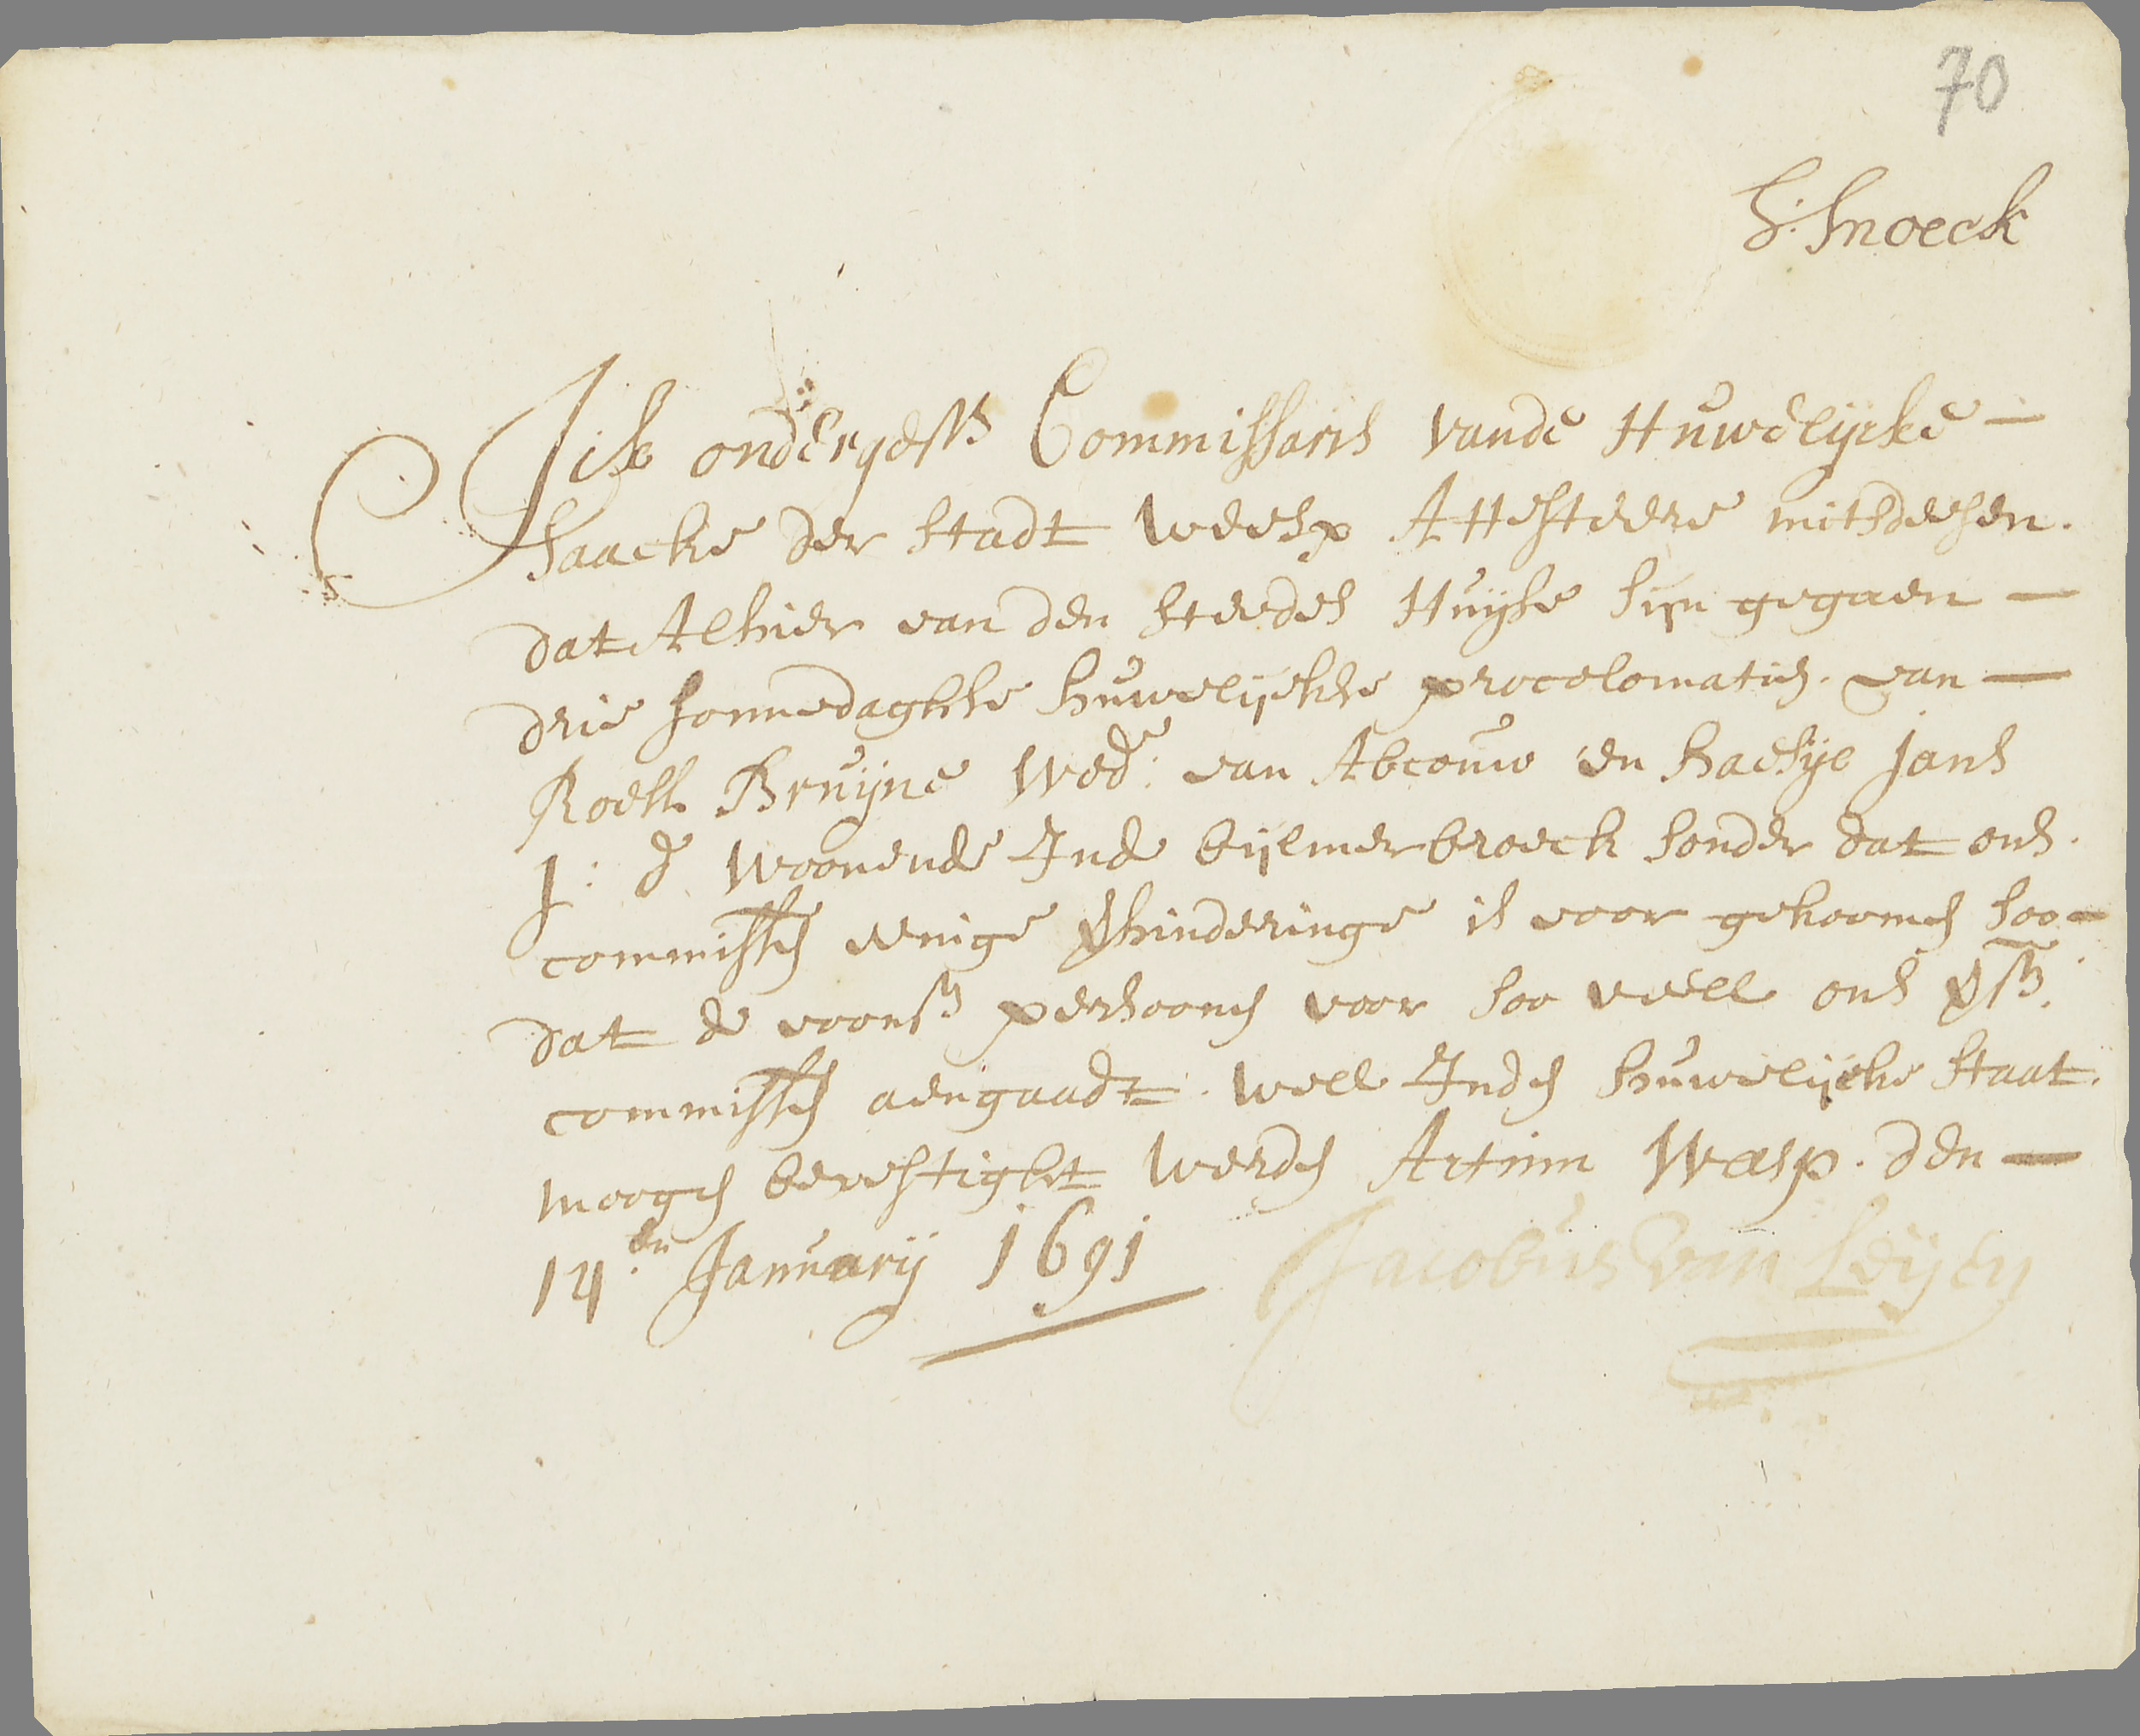 70
S: Snoeck
Ick onderges: Commissaris vande Huwelijcke
saacke der stadt weesp Attesteere mitsdeesen.
dat Alhier van den steedes Huijse sijn gegaen
drie sonnedaghse huwelijckse procolomatien. van
Roelh Bruijne Wed:e van Abcouw en haesije Jans
J: d woonende Inde bijlmerbroeck sonder dat ons.
commissen eenige verhinderinge is voor gekoomen soo
dat de voors persoonen voor soo veell ons vers:
commissen aengaadt. well Inden huwelijcke staat.
moogen bevestight werden Actum Weesp. den
14:en Januarij 1691 Jacobus van Leijen